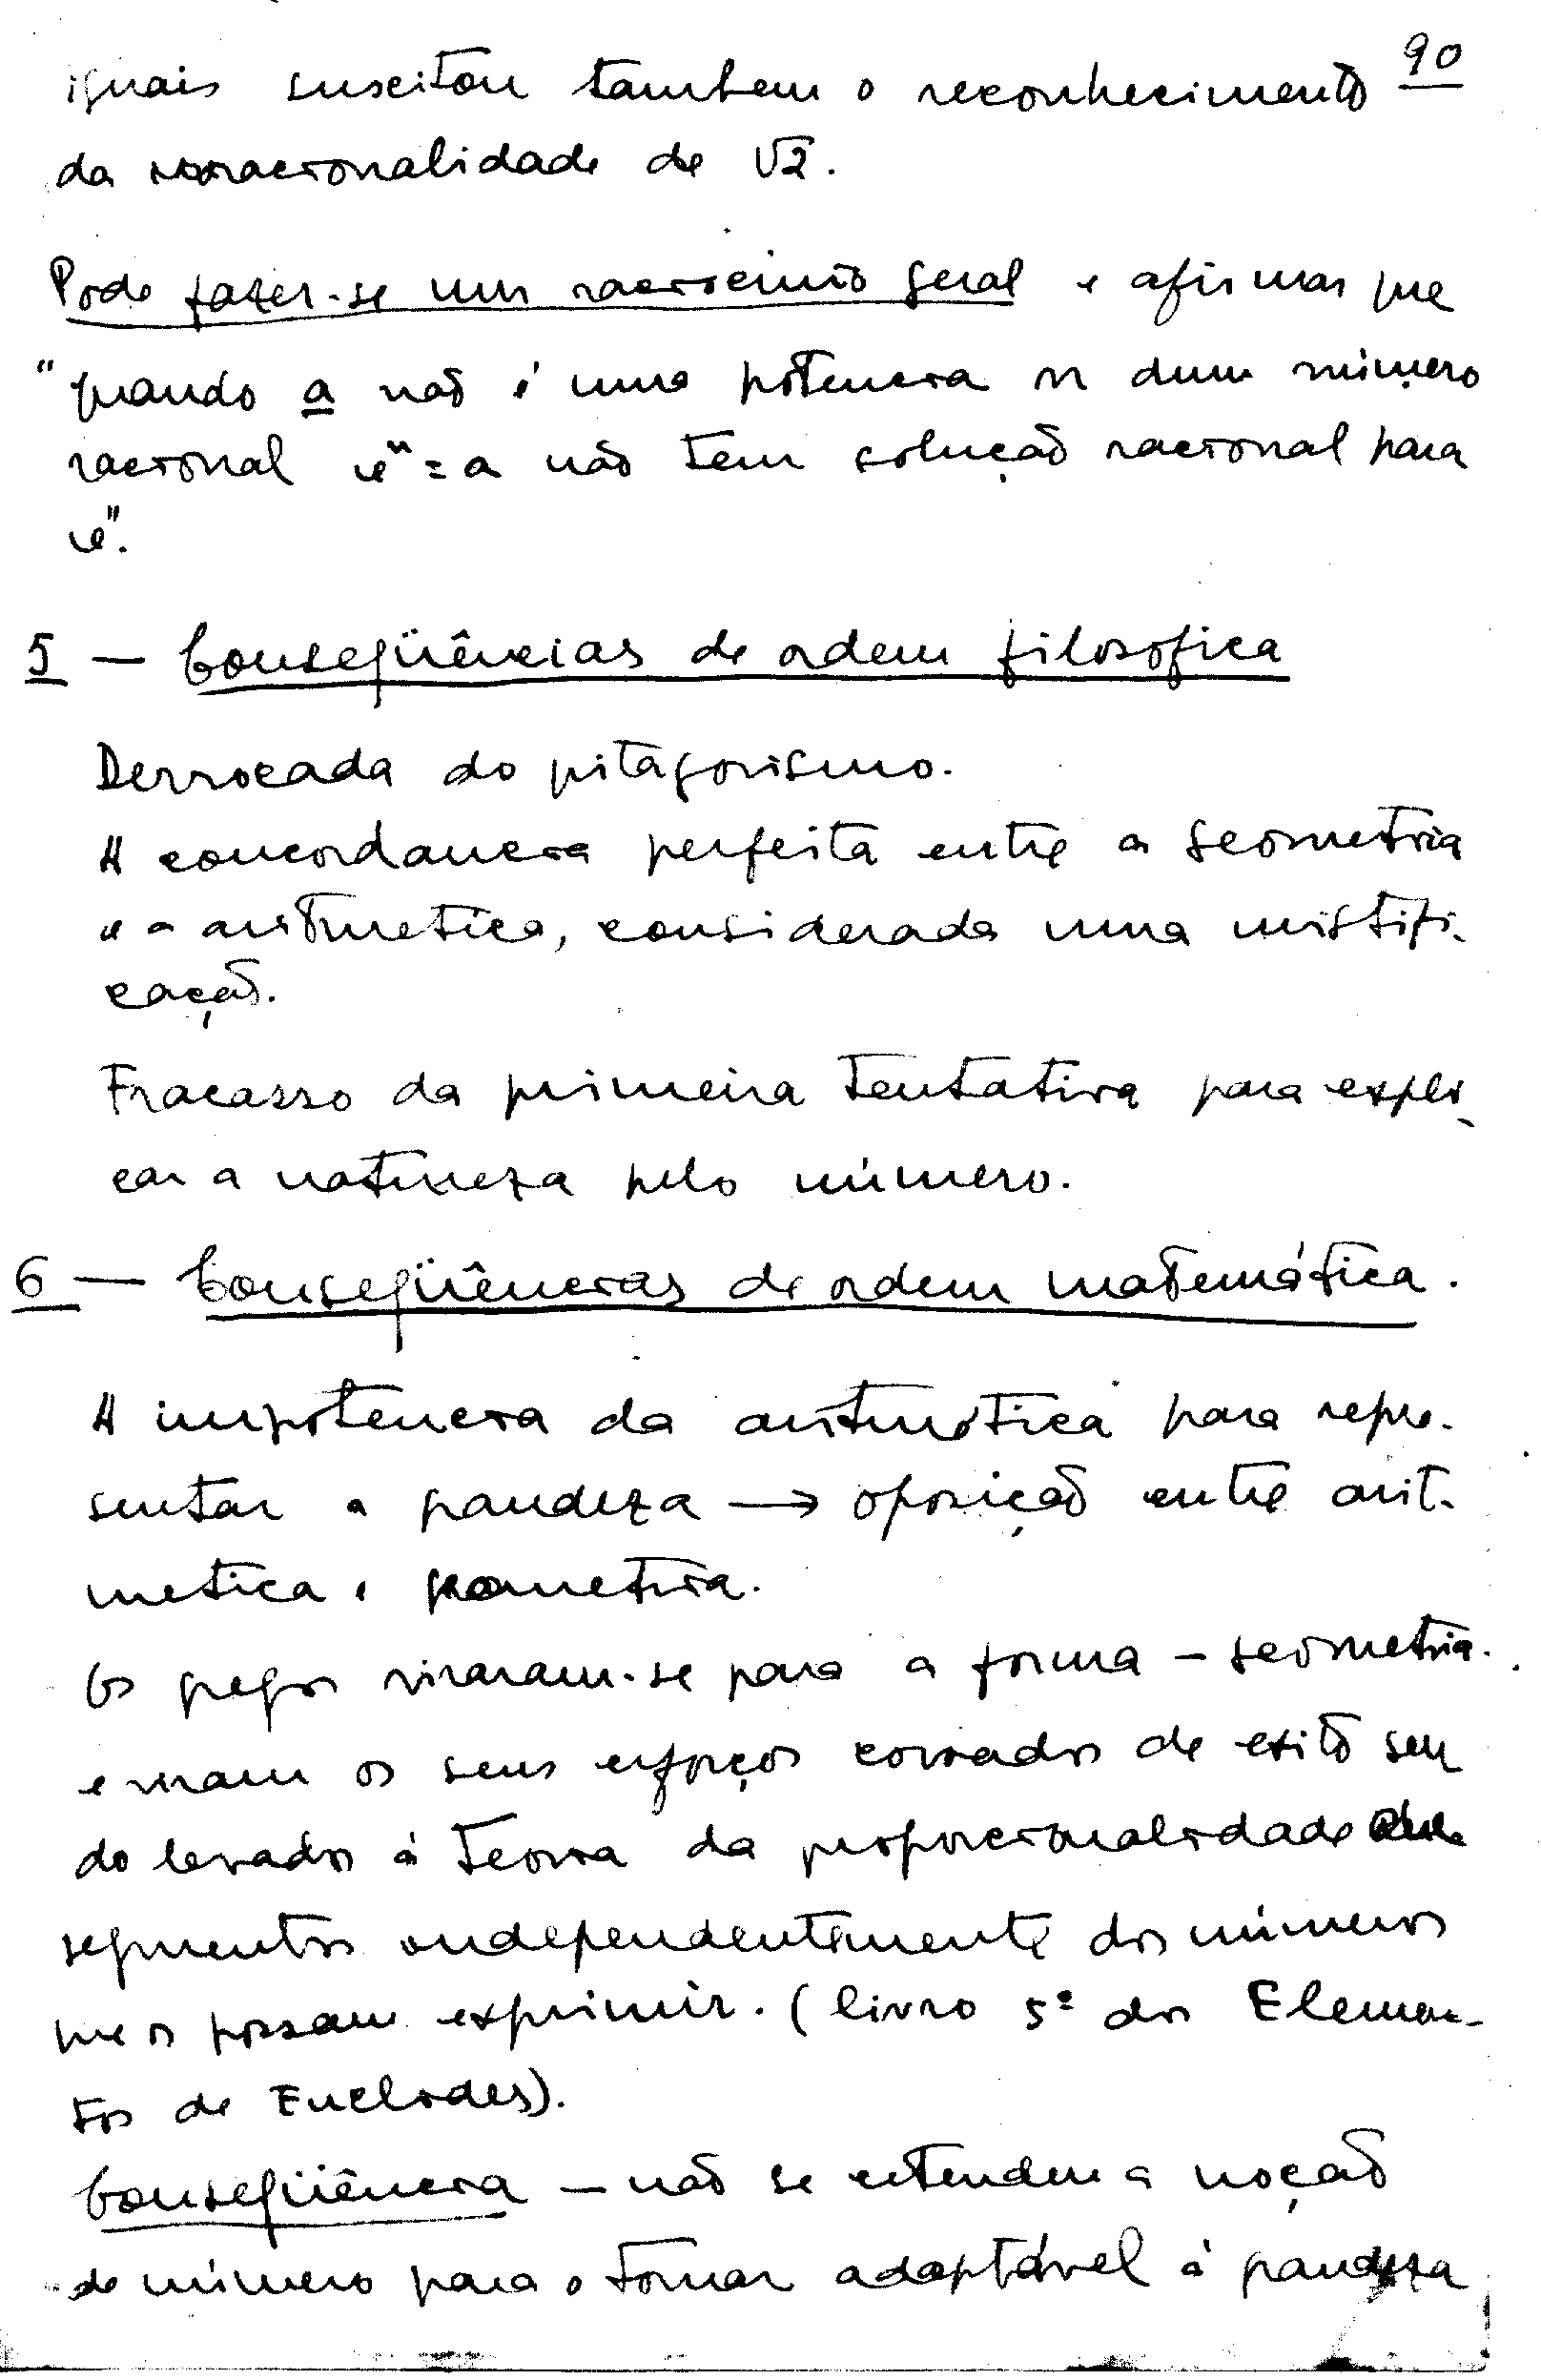 90
iguais suscitou tambem o reconhecimento
da racionalidade de √2.
Pode fazer-se um raciocinio geral e afirmar que
"quando a não é uma potencia n dum número
racional xⁿ = a não tem solução racional para
x".
5 — Conseqüências de ordem filosofica
Derrocada do pitagorismo.
A concordancia perfeita entre a geometria
e a aritmetica, considerada uma mistifi-
cação.
Fracasso da primeira tentativa para expli-
car a natureza pelo número.
6 — Conseqüências de ordem matemática.
A impotencia da aritmética para repre-
sentar a grandeza → oposição entre arit-
metica e geometria.
Os gregos viraram-se para a forma – geometria.
e viram os seus esforços coroados de exito sen
do levados á teoria da proporcionalidade de
segmentos independentemente dos números
que os possam exprimir. (livro 5º dos Elemen-
tos de Euclides).
Conseqüência – não se entendeu a noção
de número para o tornar adaptável á grandeza